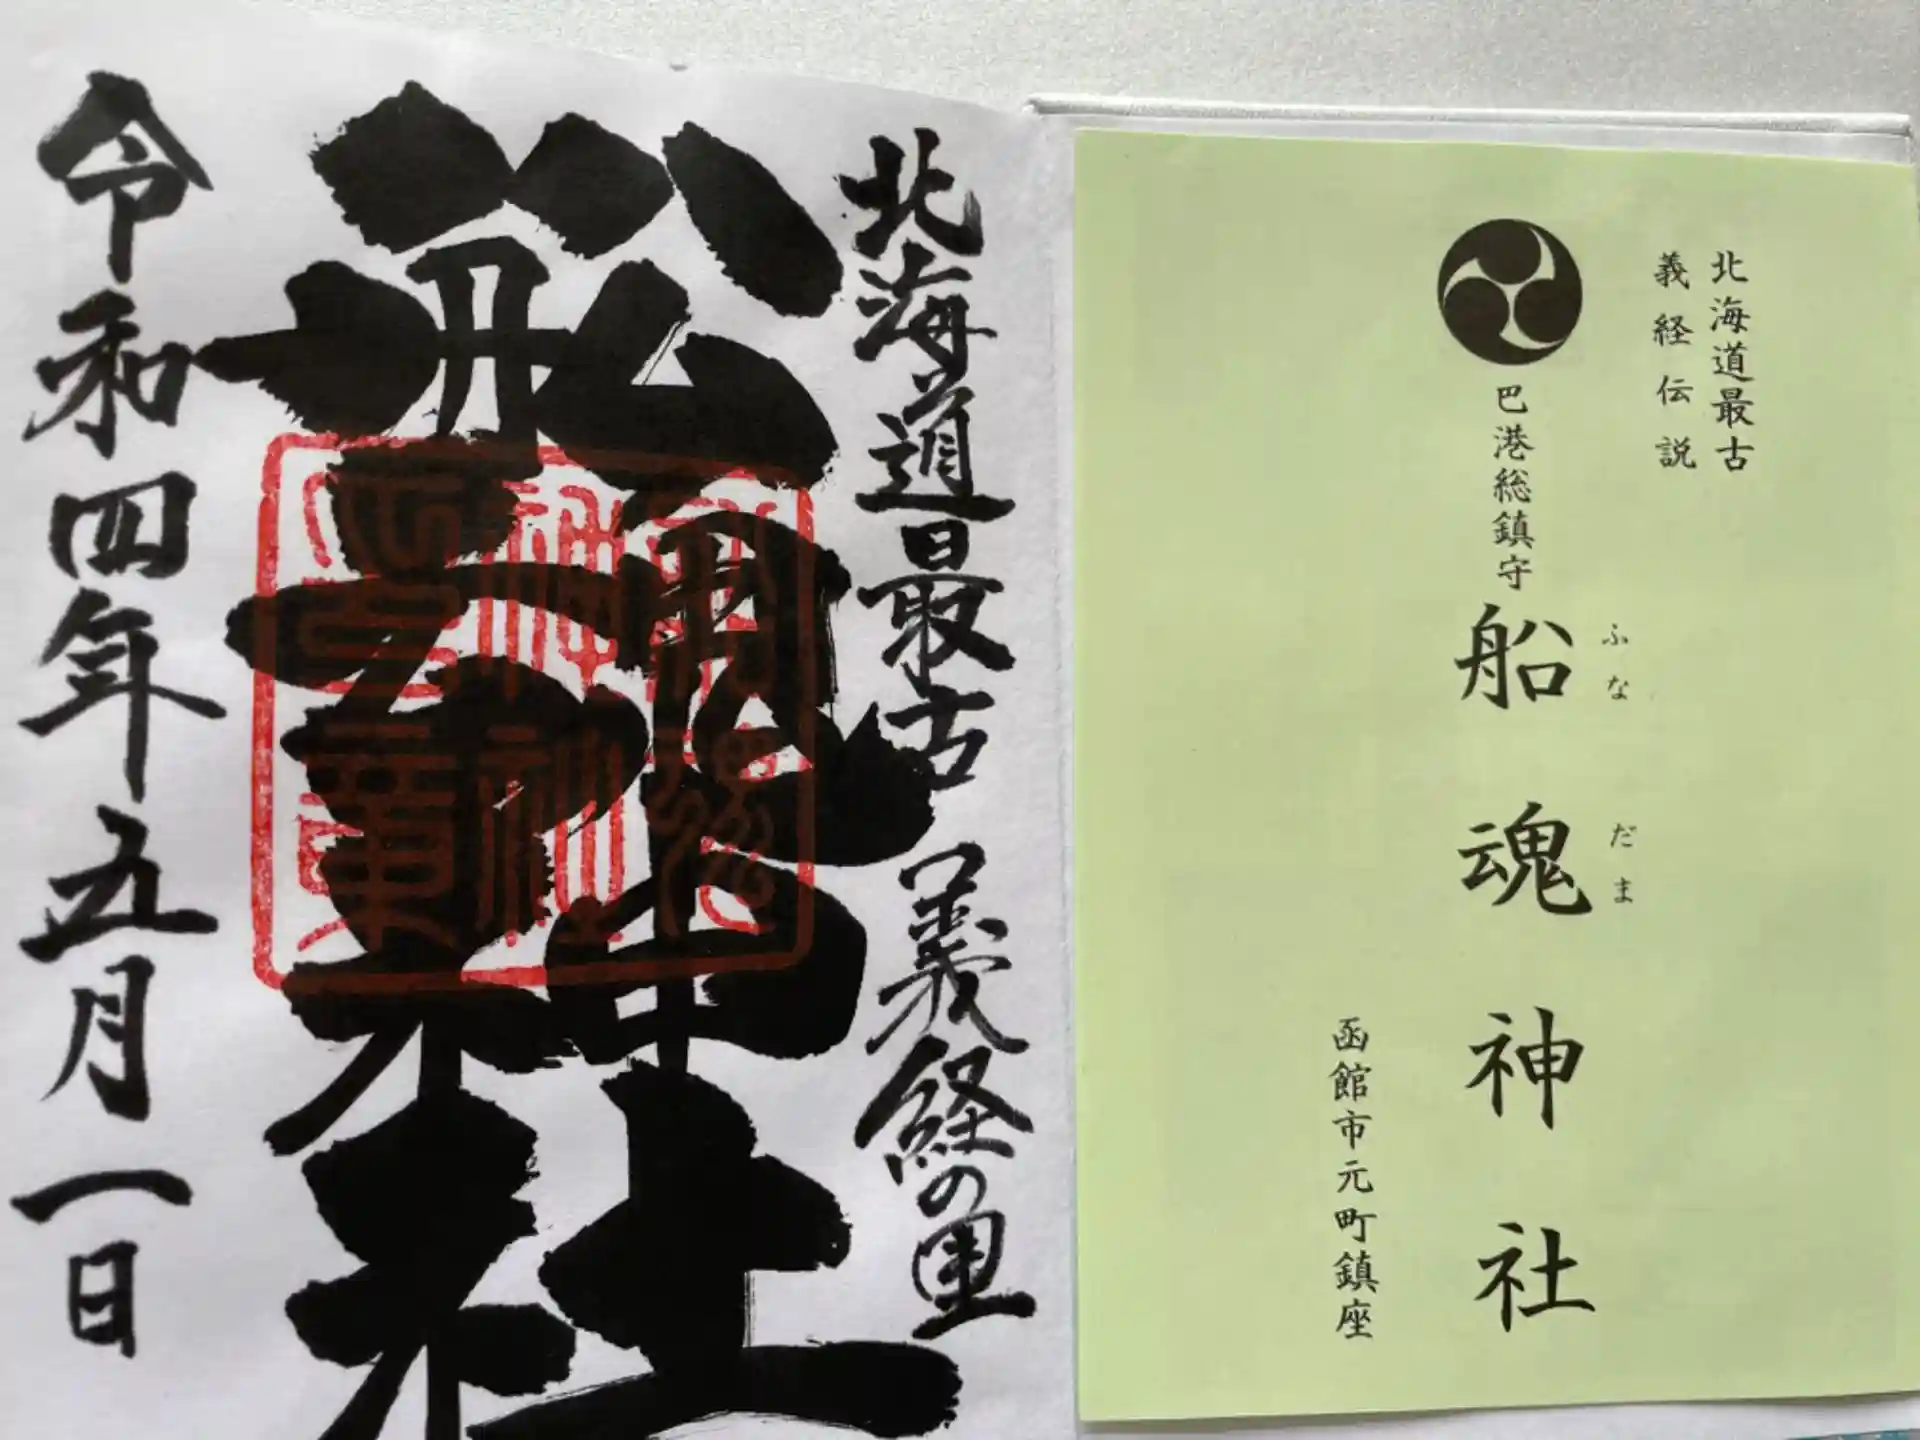 北海道最古
義経伝説
巴港総鎮守
船魂神社
ふなだま
函館市元町鎮座
北海道最古 義経の里
船魂神社
令和四年五月一日